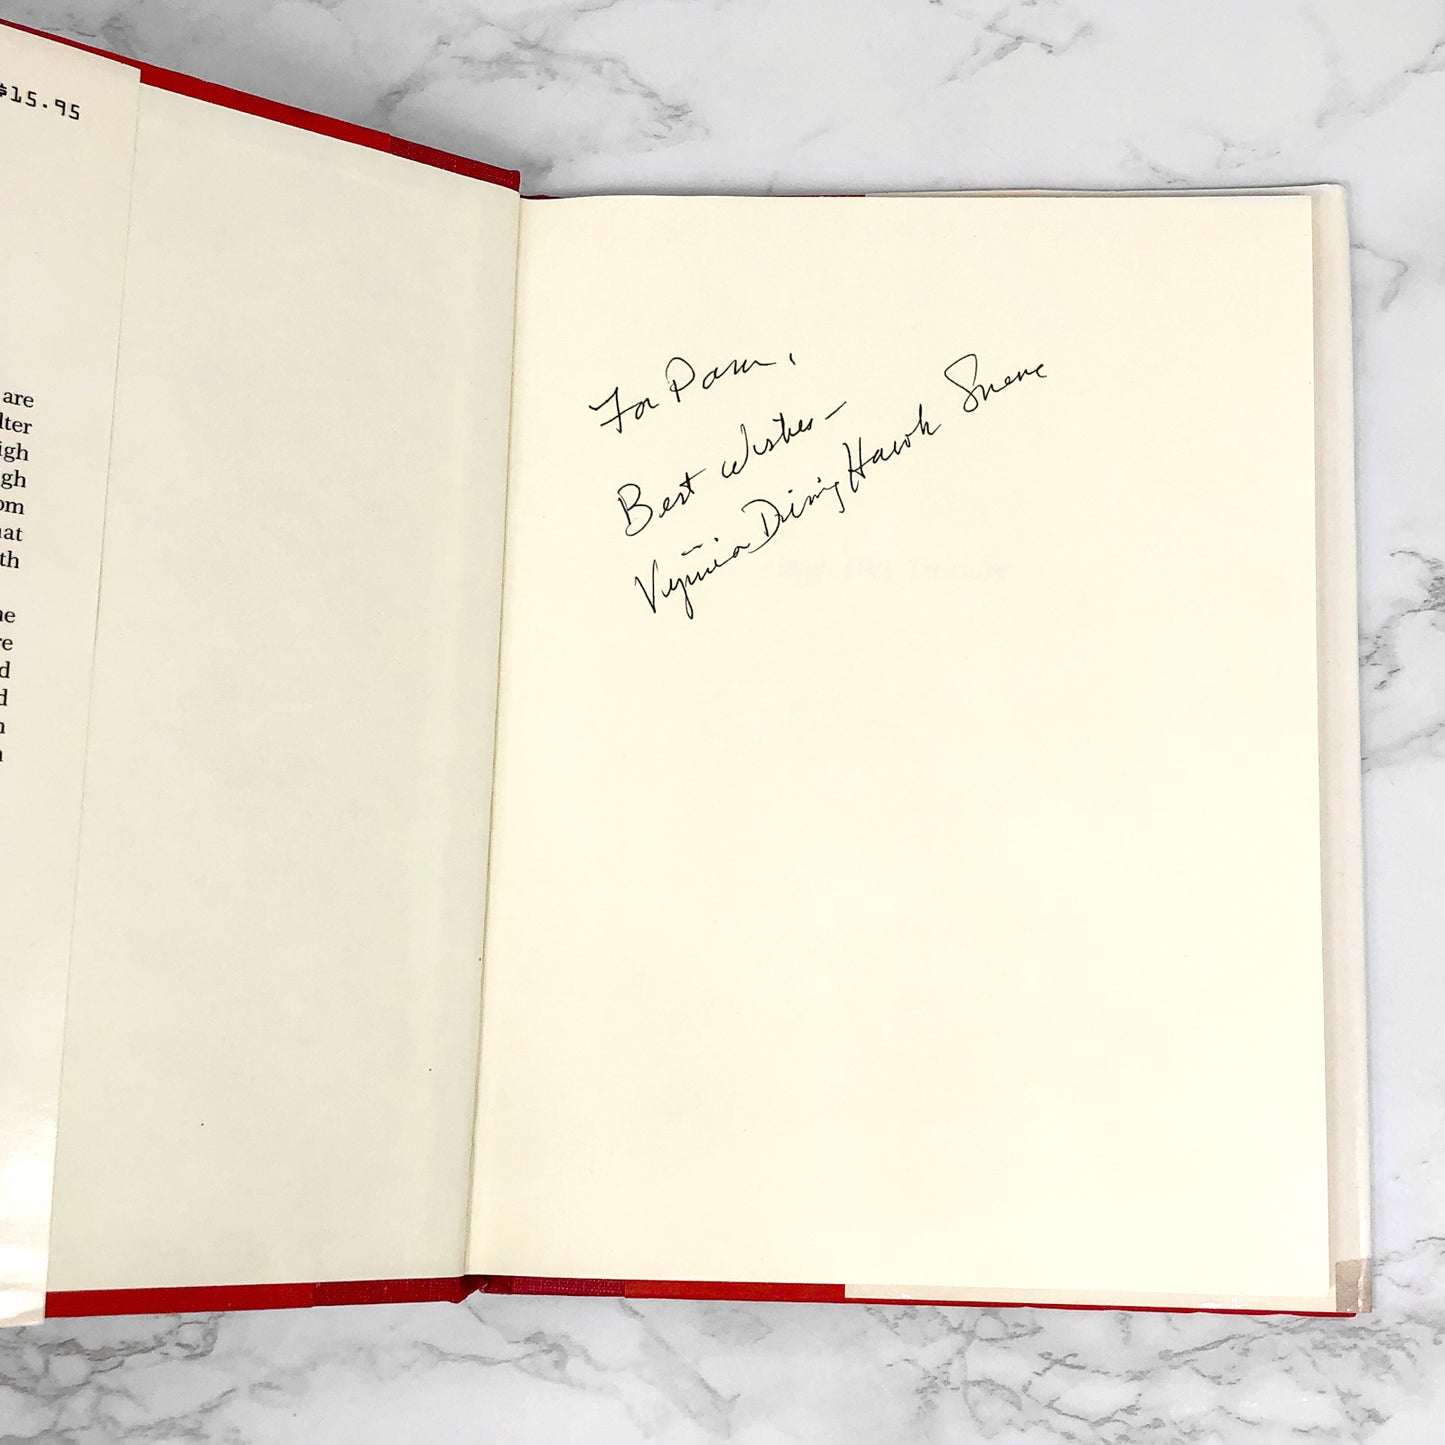 $15.95
are
lter
igh
gh
om
nat
th
ne
re
d
d
n
n
For Pam,
Best Wishes –
Virginia Driving Hawk Sneve
High Elk's Treasure